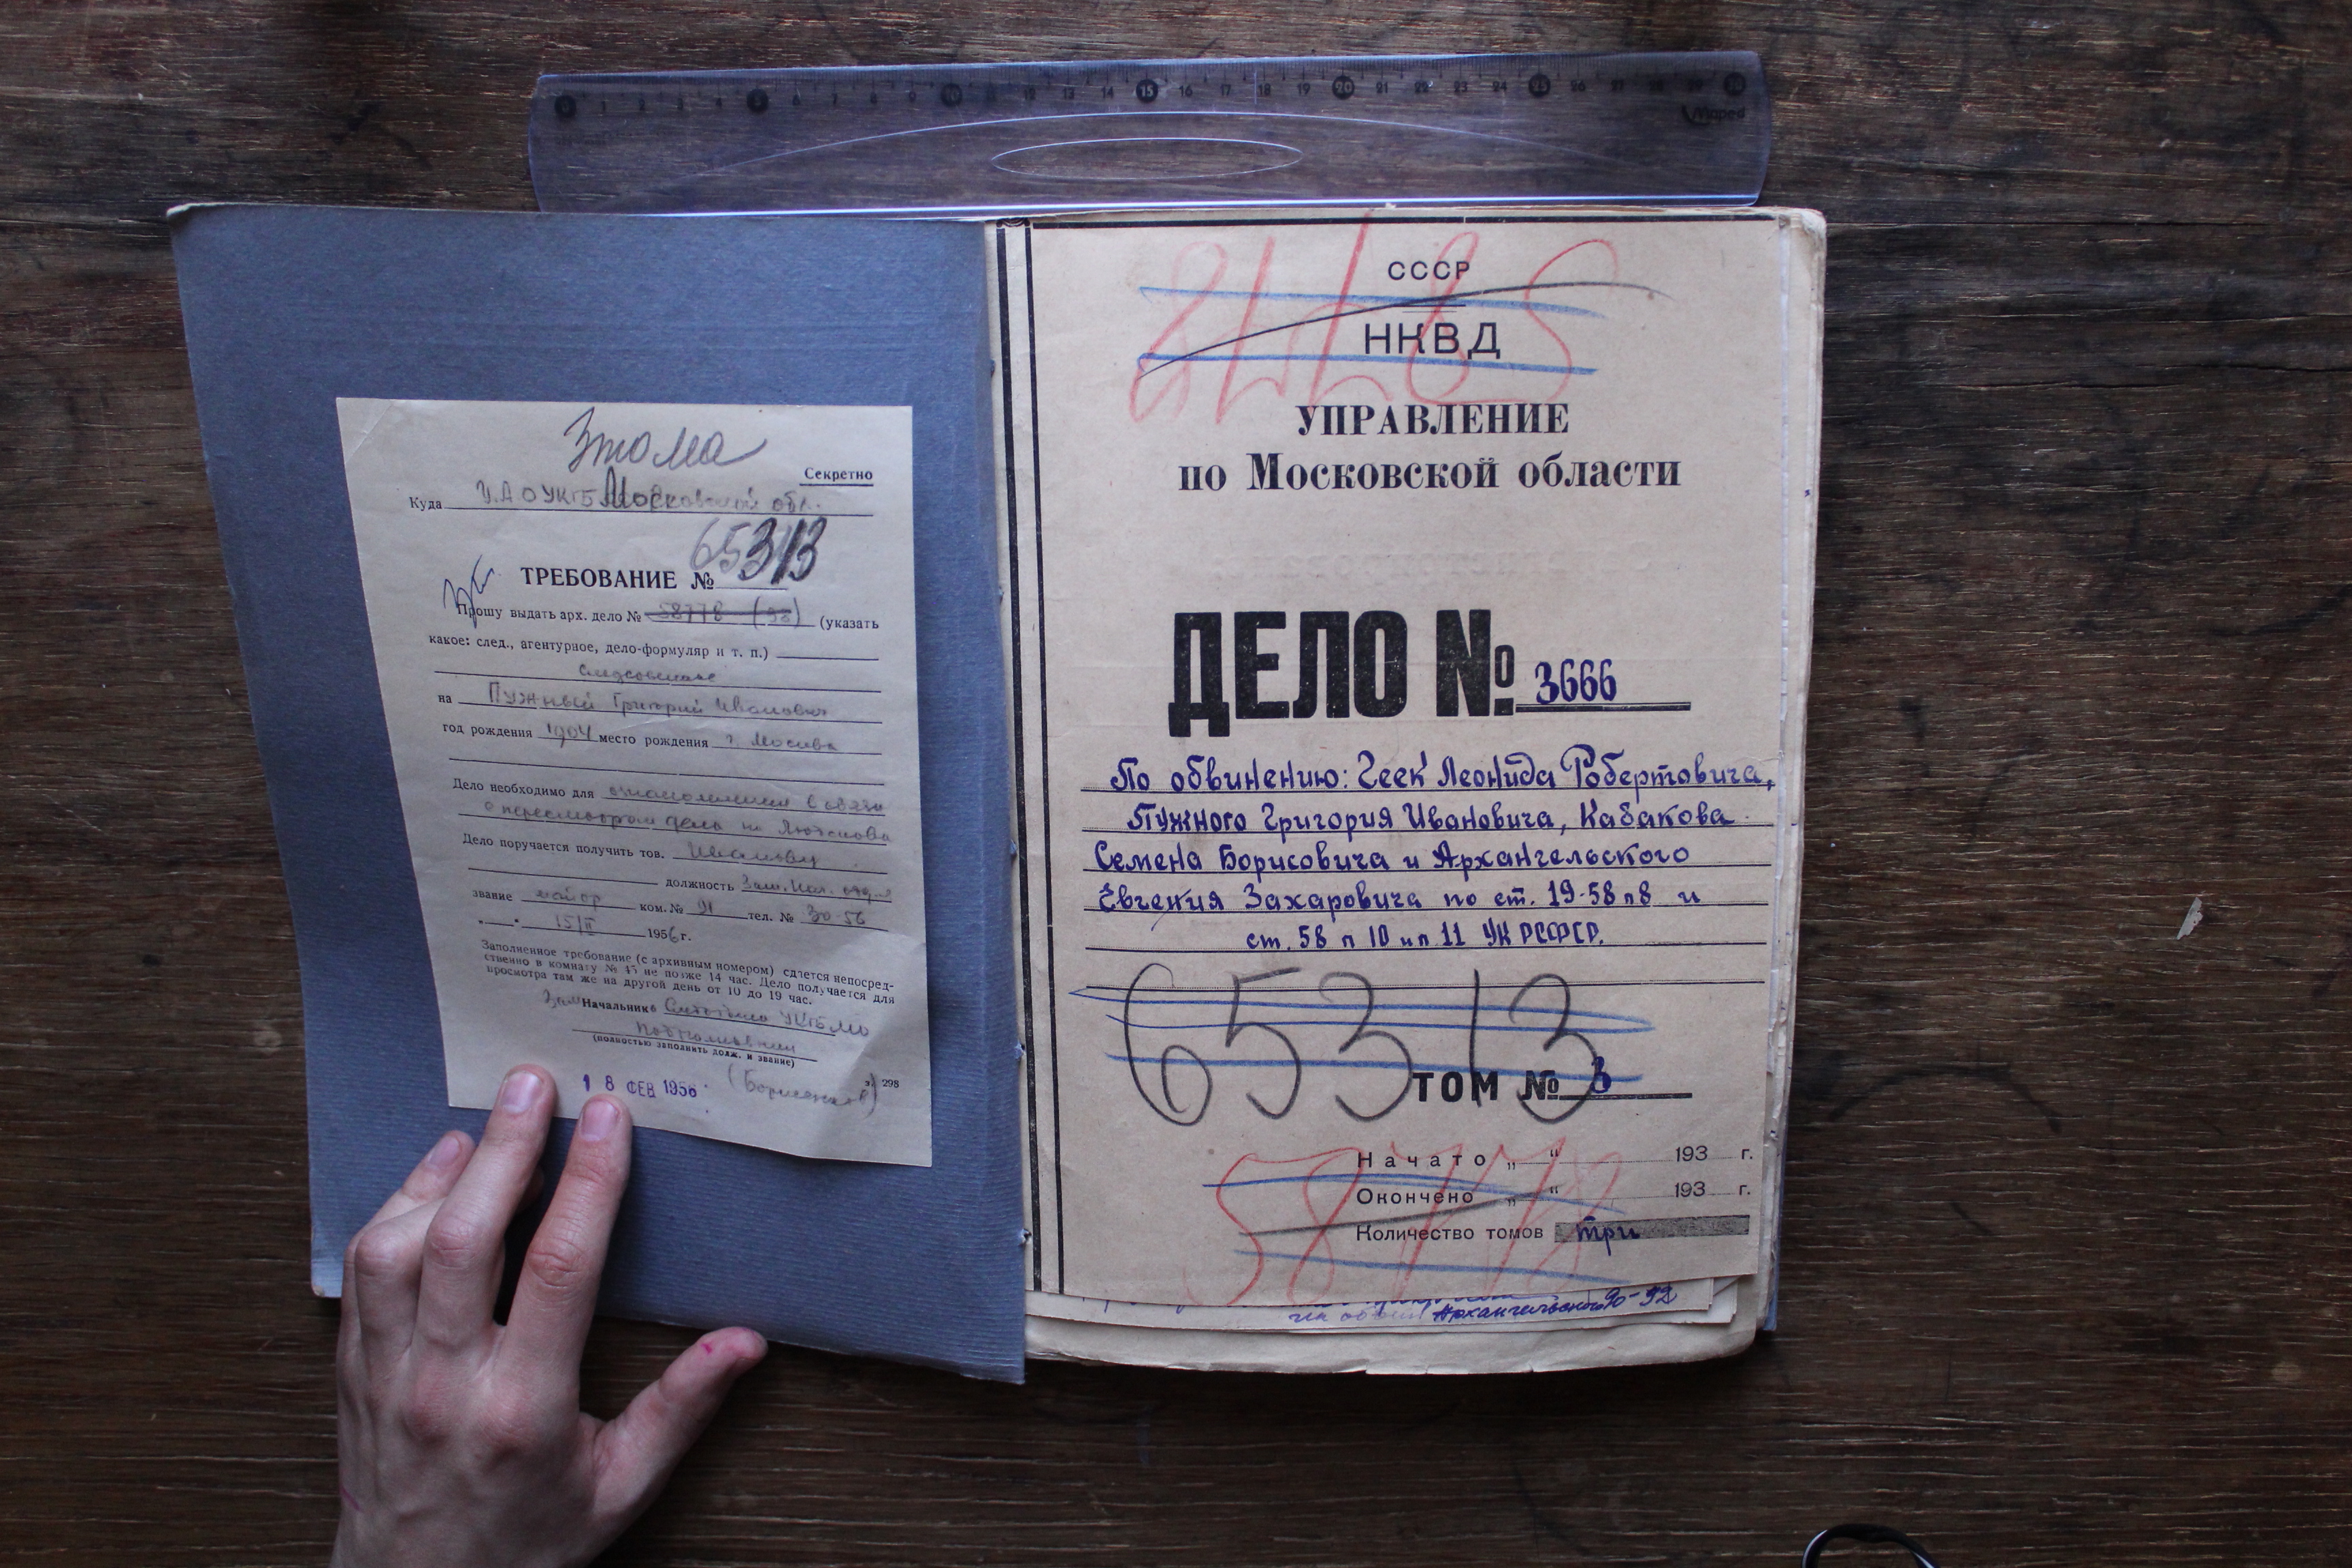 0 1 2 3 4 5 6 7 8 9 10 11 12 13 14 15 16 17 18 19 20 21 22 23 24 25 26 27 28 29 30
Maped
3 тома
Секретно
Куда У.А.О УКГБ Московской обл.
65313
ТРЕБОВАНИЕ №
Прошу выдать арх. дело № 58778 (98) (указать
какое: след., агентурное, дело-формуляр и т. п.)
следственное
на Пужный Григорий Иванович
год рождения 1904 место рождения г. Москва
Дело необходимо для ознакомления в связи
с пересмотром дела по
Дело поручается получить тов. Иванову
должность Зам. нач. отд-я
звание майор ком. № 91 тел. № 30-56
„ “ 15/II 1956 г.
Заполненное требование (с архивным номером) сдается непосред-
ственно в комнату № 45 не позже 14 час. Дело получается для
просмотра там же на другой день от 10 до 19 час.
Зам Начальник УКГБ МО
подполковник
(полностью заполнить долж. и звание)
з. 298
18 ФЕВ 1956
СССР
НКВД
УПРАВЛЕНИЕ
по Московской области
ДЕЛО № 3666
По обвинению: Геек Леонида Робертовича,
Пужного Григория Ивановича, Кабакова
Семена Борисовича и Архангельского
Евгения Захаровича по ст. 19-58 п 8 и
ст. 58 п 10 и п 11 УК РСФСР.
65313
ТОМ № 3
Начато „ “ 193 г.
58778
Окончено „ “ 193 г.
Количество томов три
Архангельского 90-92